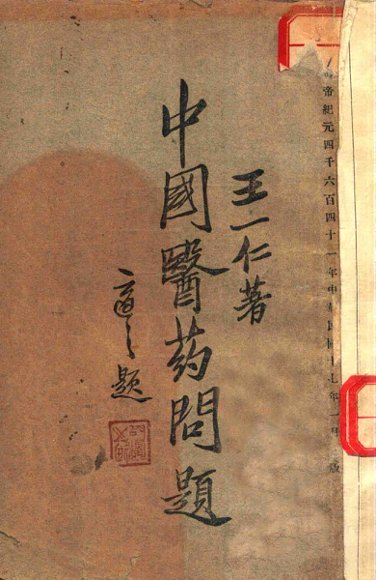 帝紀元四千六百四十一年中華民國十七年一月版
王一仁著
中國醫药問題
適之題